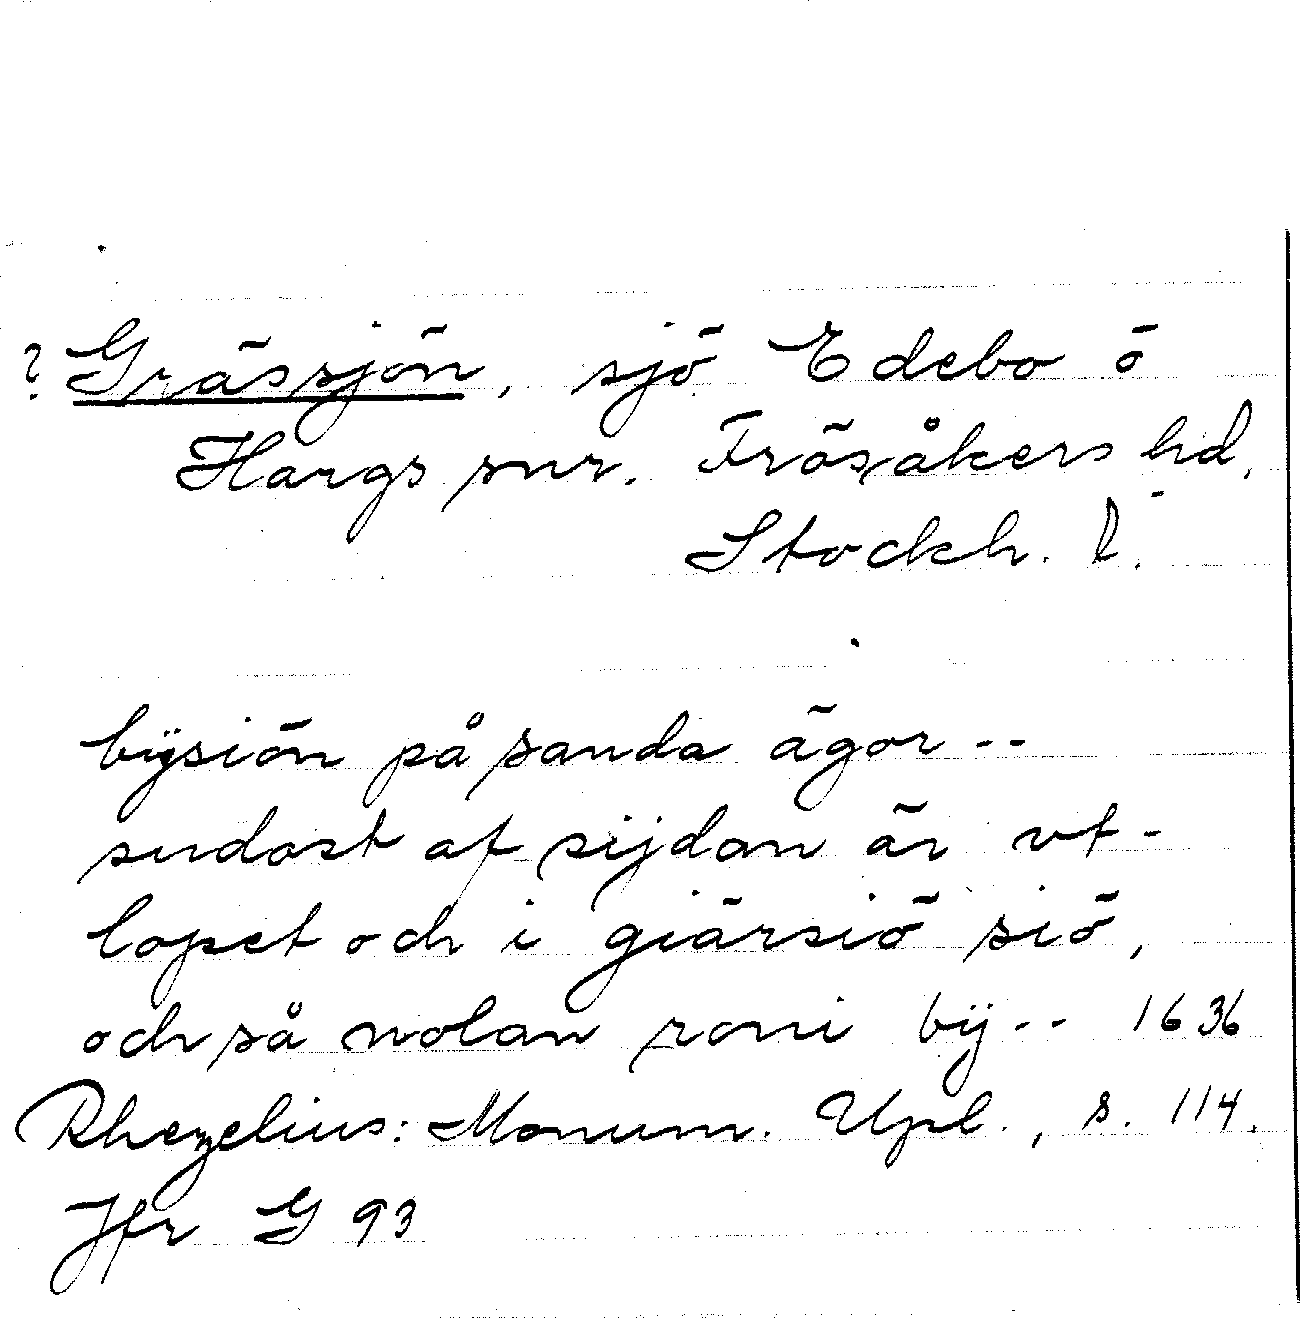 ? Grässjön, sjö Edebo o
Hargs snr. Frösåkers hd,
Stockh. l.
bÿsiön på sanda ägor --
sudost af sijdan är vt-
lopet och i giärsiö siö,
och så nolan roni bÿ -- 1636
Rhezelius: Monum. Upl., s. 114.
Jfr G 93